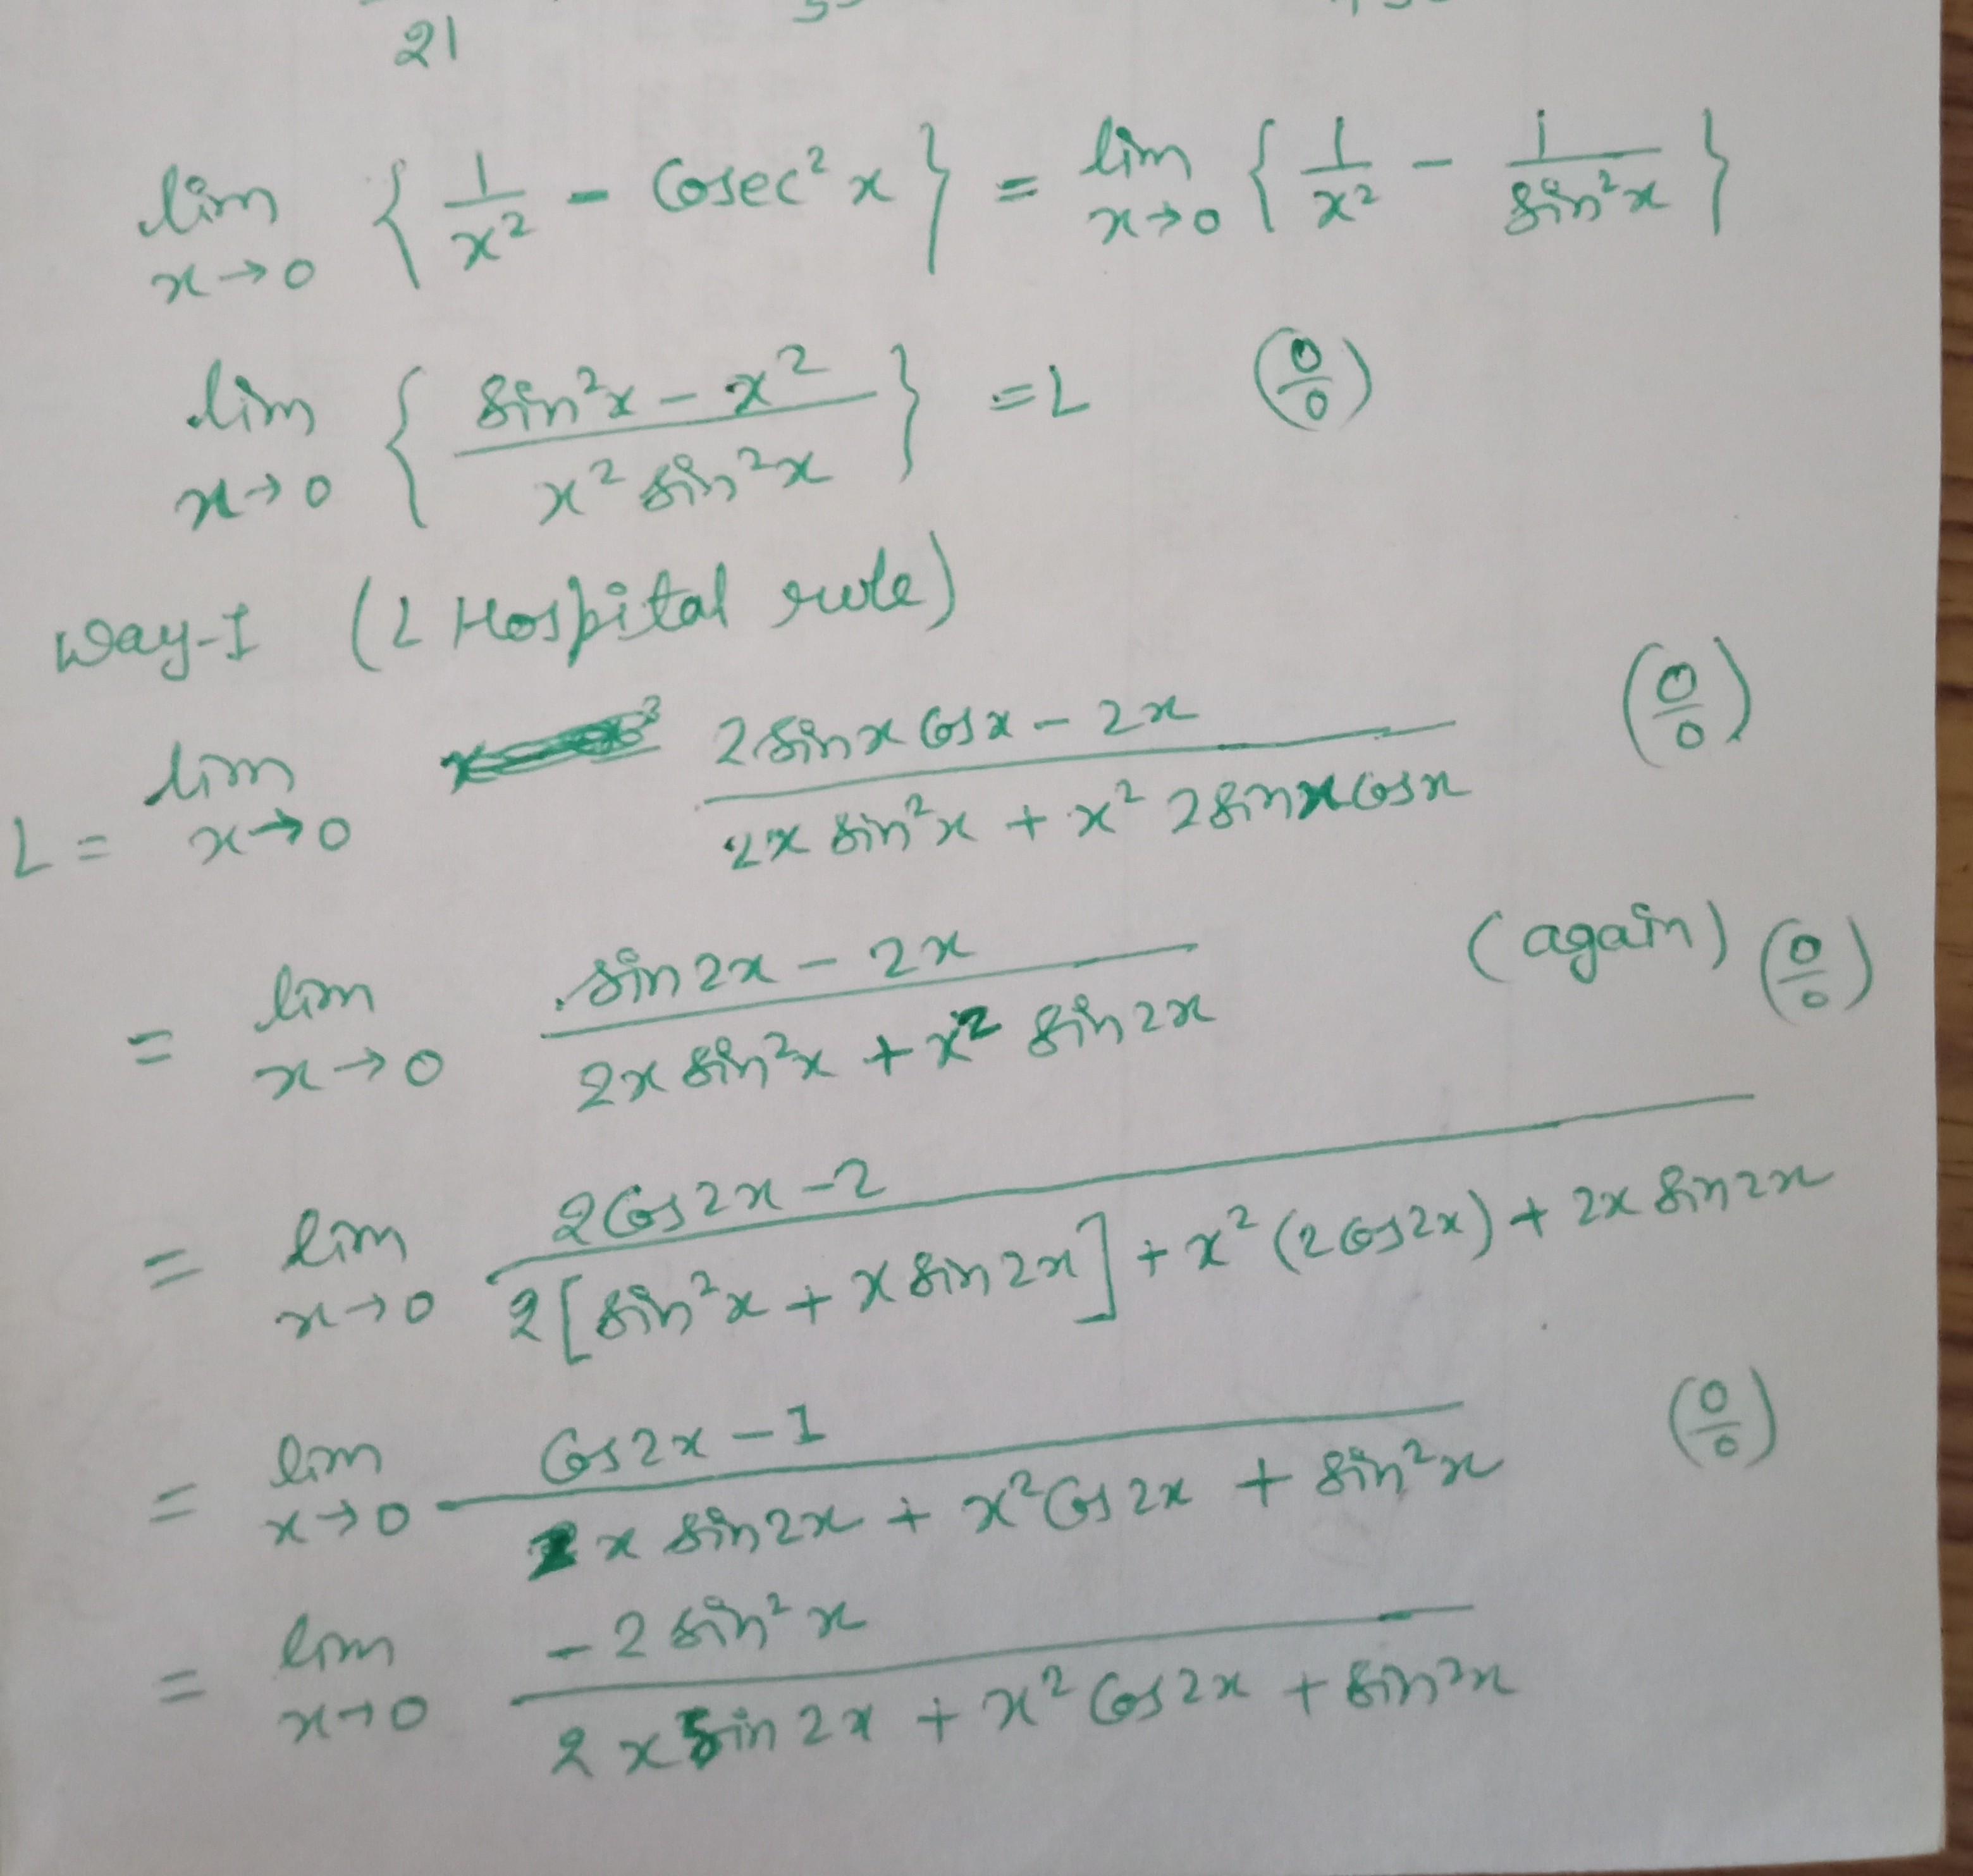 21
lim x→0 { 1/x² - Cosec² x } = lim x→0 { 1/x² - 1/sin²x }
lim x→0 { (sin²x - x²)/(x² sin²x) } = L (0/0)
Way-I (L Hospital rule)
L = lim x→0 (2 sin x Cos x - 2x)/(2x sin²x + x² 2 sin x Cos x) (0/0)
= lim x→0 (sin 2x - 2x)/(2x sin²x + x² sin 2x) (again) (0/0)
= lim x→0 (2 Cos 2x - 2)/(2[sin²x + x sin 2x] + x² (2 Cos 2x) + 2x sin 2x)
= lim x→0 (Cos 2x - 1)/(2x sin 2x + x² Cos 2x + sin²x) (0/0)
= lim x→0 (-2 sin²x)/(2x Sin 2x + x² Cos 2x + sin²x)